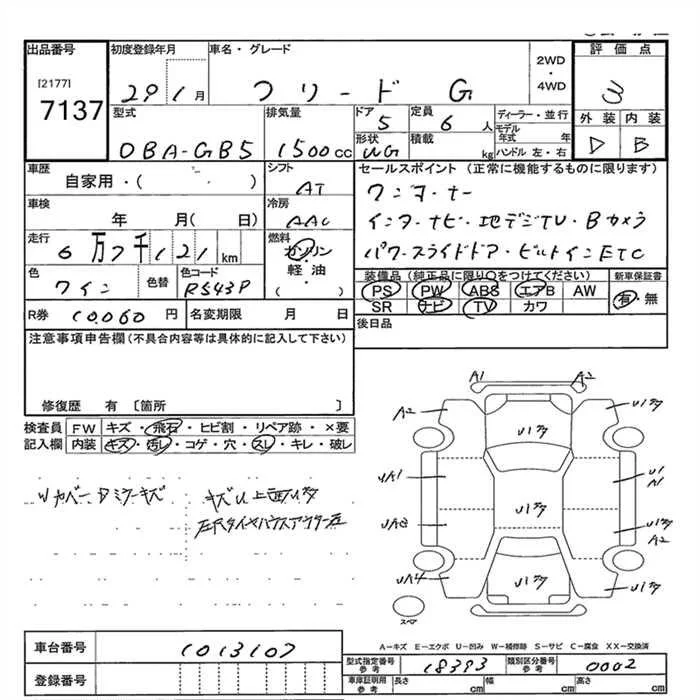 出品番号 初度登録年月 車名・グレード 評価点
[2177] 2WD・4WD
7137 29 1月 フリード G 3
型式 排気量 ドア 5 定員 6人 ディーラー・並行 外装 内装
DBA-GB5 1500cc 形状 積載 kg モデル年式 年 ハンドル 左・右 D B
車歴 自家用・( ) シフト AT
セールスポイント (正常に機能するものに限ります)
ワンオーナー
車検 年 月( 日) 冷房 AAC
インターナビ・地デジTV・Bカメラ
走行 6万7千121km 燃料 ガソリン・軽油・( )
パワースライドドア・ビルトインETC
色 ワイン 色替 色コード R543P
装備品 (純正品に限り○をつけてください) 新車保証書
PS PW ABS エアB AW 有・無
SR ナビ TV カワ
R券 10,060円 名変期限 月 日
後日品
注意事項申告欄(不具合内容等は具体的に記入して下さい)
修復歴 有 〔箇所 〕
検査員記入欄 FW キズ・飛石・ヒビ割・リペア跡・×要
内装 キズ・汚レ・コゲ・穴・スレ・キレ・破レ
A1 A2
A2 U1ヶタ
UA1 U1 A1
U1ヶタ A2
UA4 U1ヶタ
スペア
A-キズ E-エクボ U-凹み W-補修跡 S-サビ C-腐食 XX-交換済
車台番号 1013107
登録番号
型式指定番号 参考 18393 類別区分番号 参考 0002
車庫証明用 参考 長さ cm 幅 cm 高さ cm